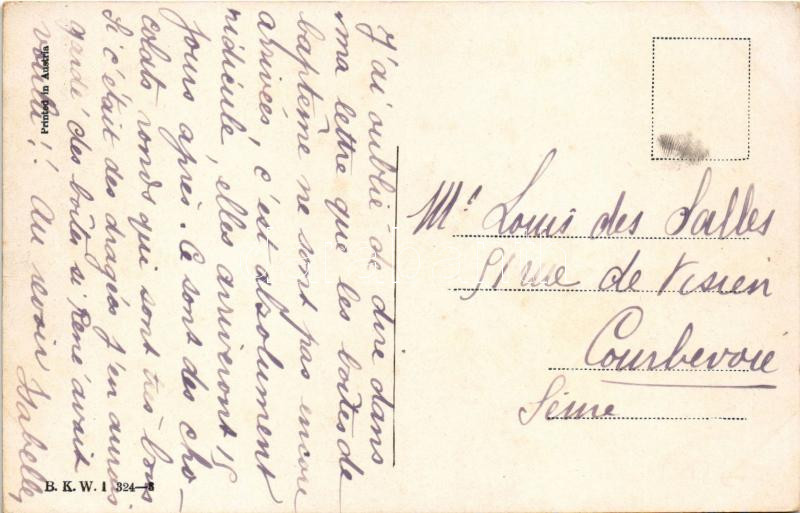 J'ai oublié de dire dans
ma lettre que les boîtes de
baptême ne sont pas encore
arrivées, c'est absolument
ridicule, elles arriveront 15
jours après. Ce sont des cho-
colats ronds qui sont très bons
Si c'était des dragées j'en aurais
gardé des boîtes si René avait
voulu!! Au revoir Isabelle,
Mr Louis des Salles
rue de
Courbevoie
Seine
Printed in Austria
B. K. W. I 324—8